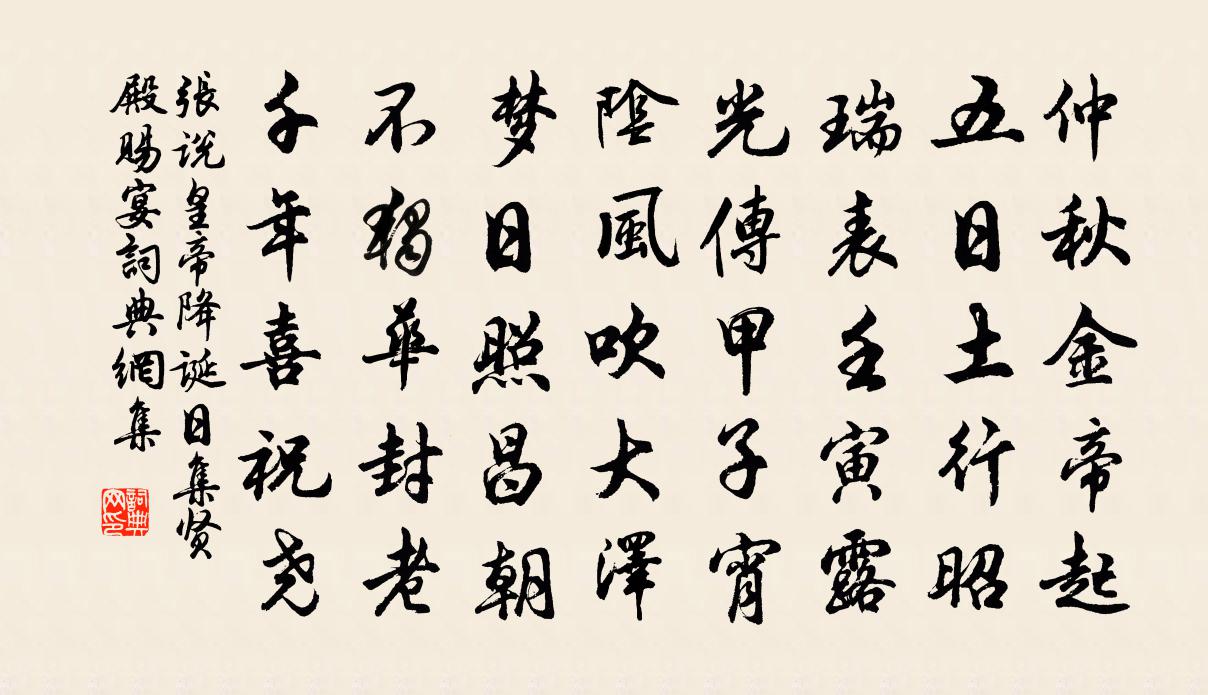 仲秋金帝起
五日土行昭
瑞表壬寅露
光傳甲子宵
陰風吹大澤
梦日照昌朝
不獨華封老
千年喜祝尧
張説皇帝降誕日集贤
殿賜宴詞典網集
詞典
网印